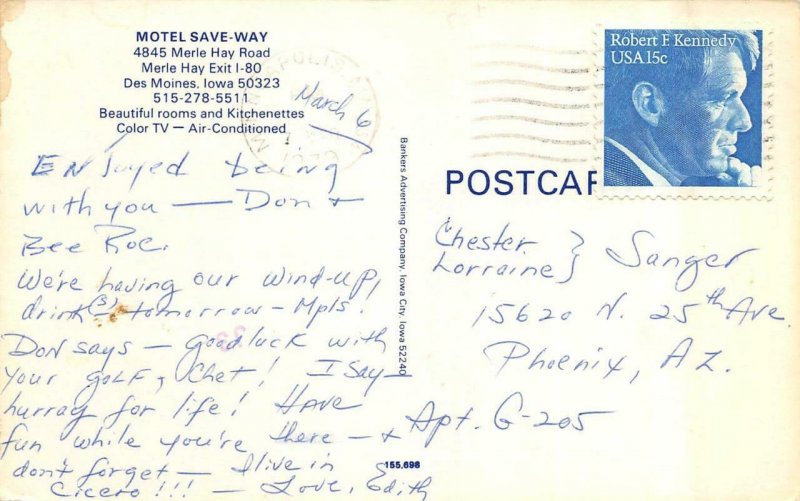 MOTEL SAVE-WAY
4845 Merle Hay Road
Merle Hay Exit I-80
Des Moines, Iowa 50323
515-278-5511
Beautiful rooms and Kitchenettes
Color TV — Air-Conditioned
March 6
Enjoyed being
with you — Don +
Bee Roe.
We're having our wind-up,
drink(s) tomorrow — Mpls.
Don says — Good luck with
your golf, Chet! I say —
hurray for life! Have
fun while you're there — +
don't forget — I live in
Cicero!!! — Love, Edith
Bankers Advertising Company, Iowa City, Iowa 52240
155,698
Robert F. Kennedy
USA 15c
POSTCAR
Chester }
Lorraine } Sanger
15620 N. 25th Ave.
Phoenix, AZ.
Apt. G-205